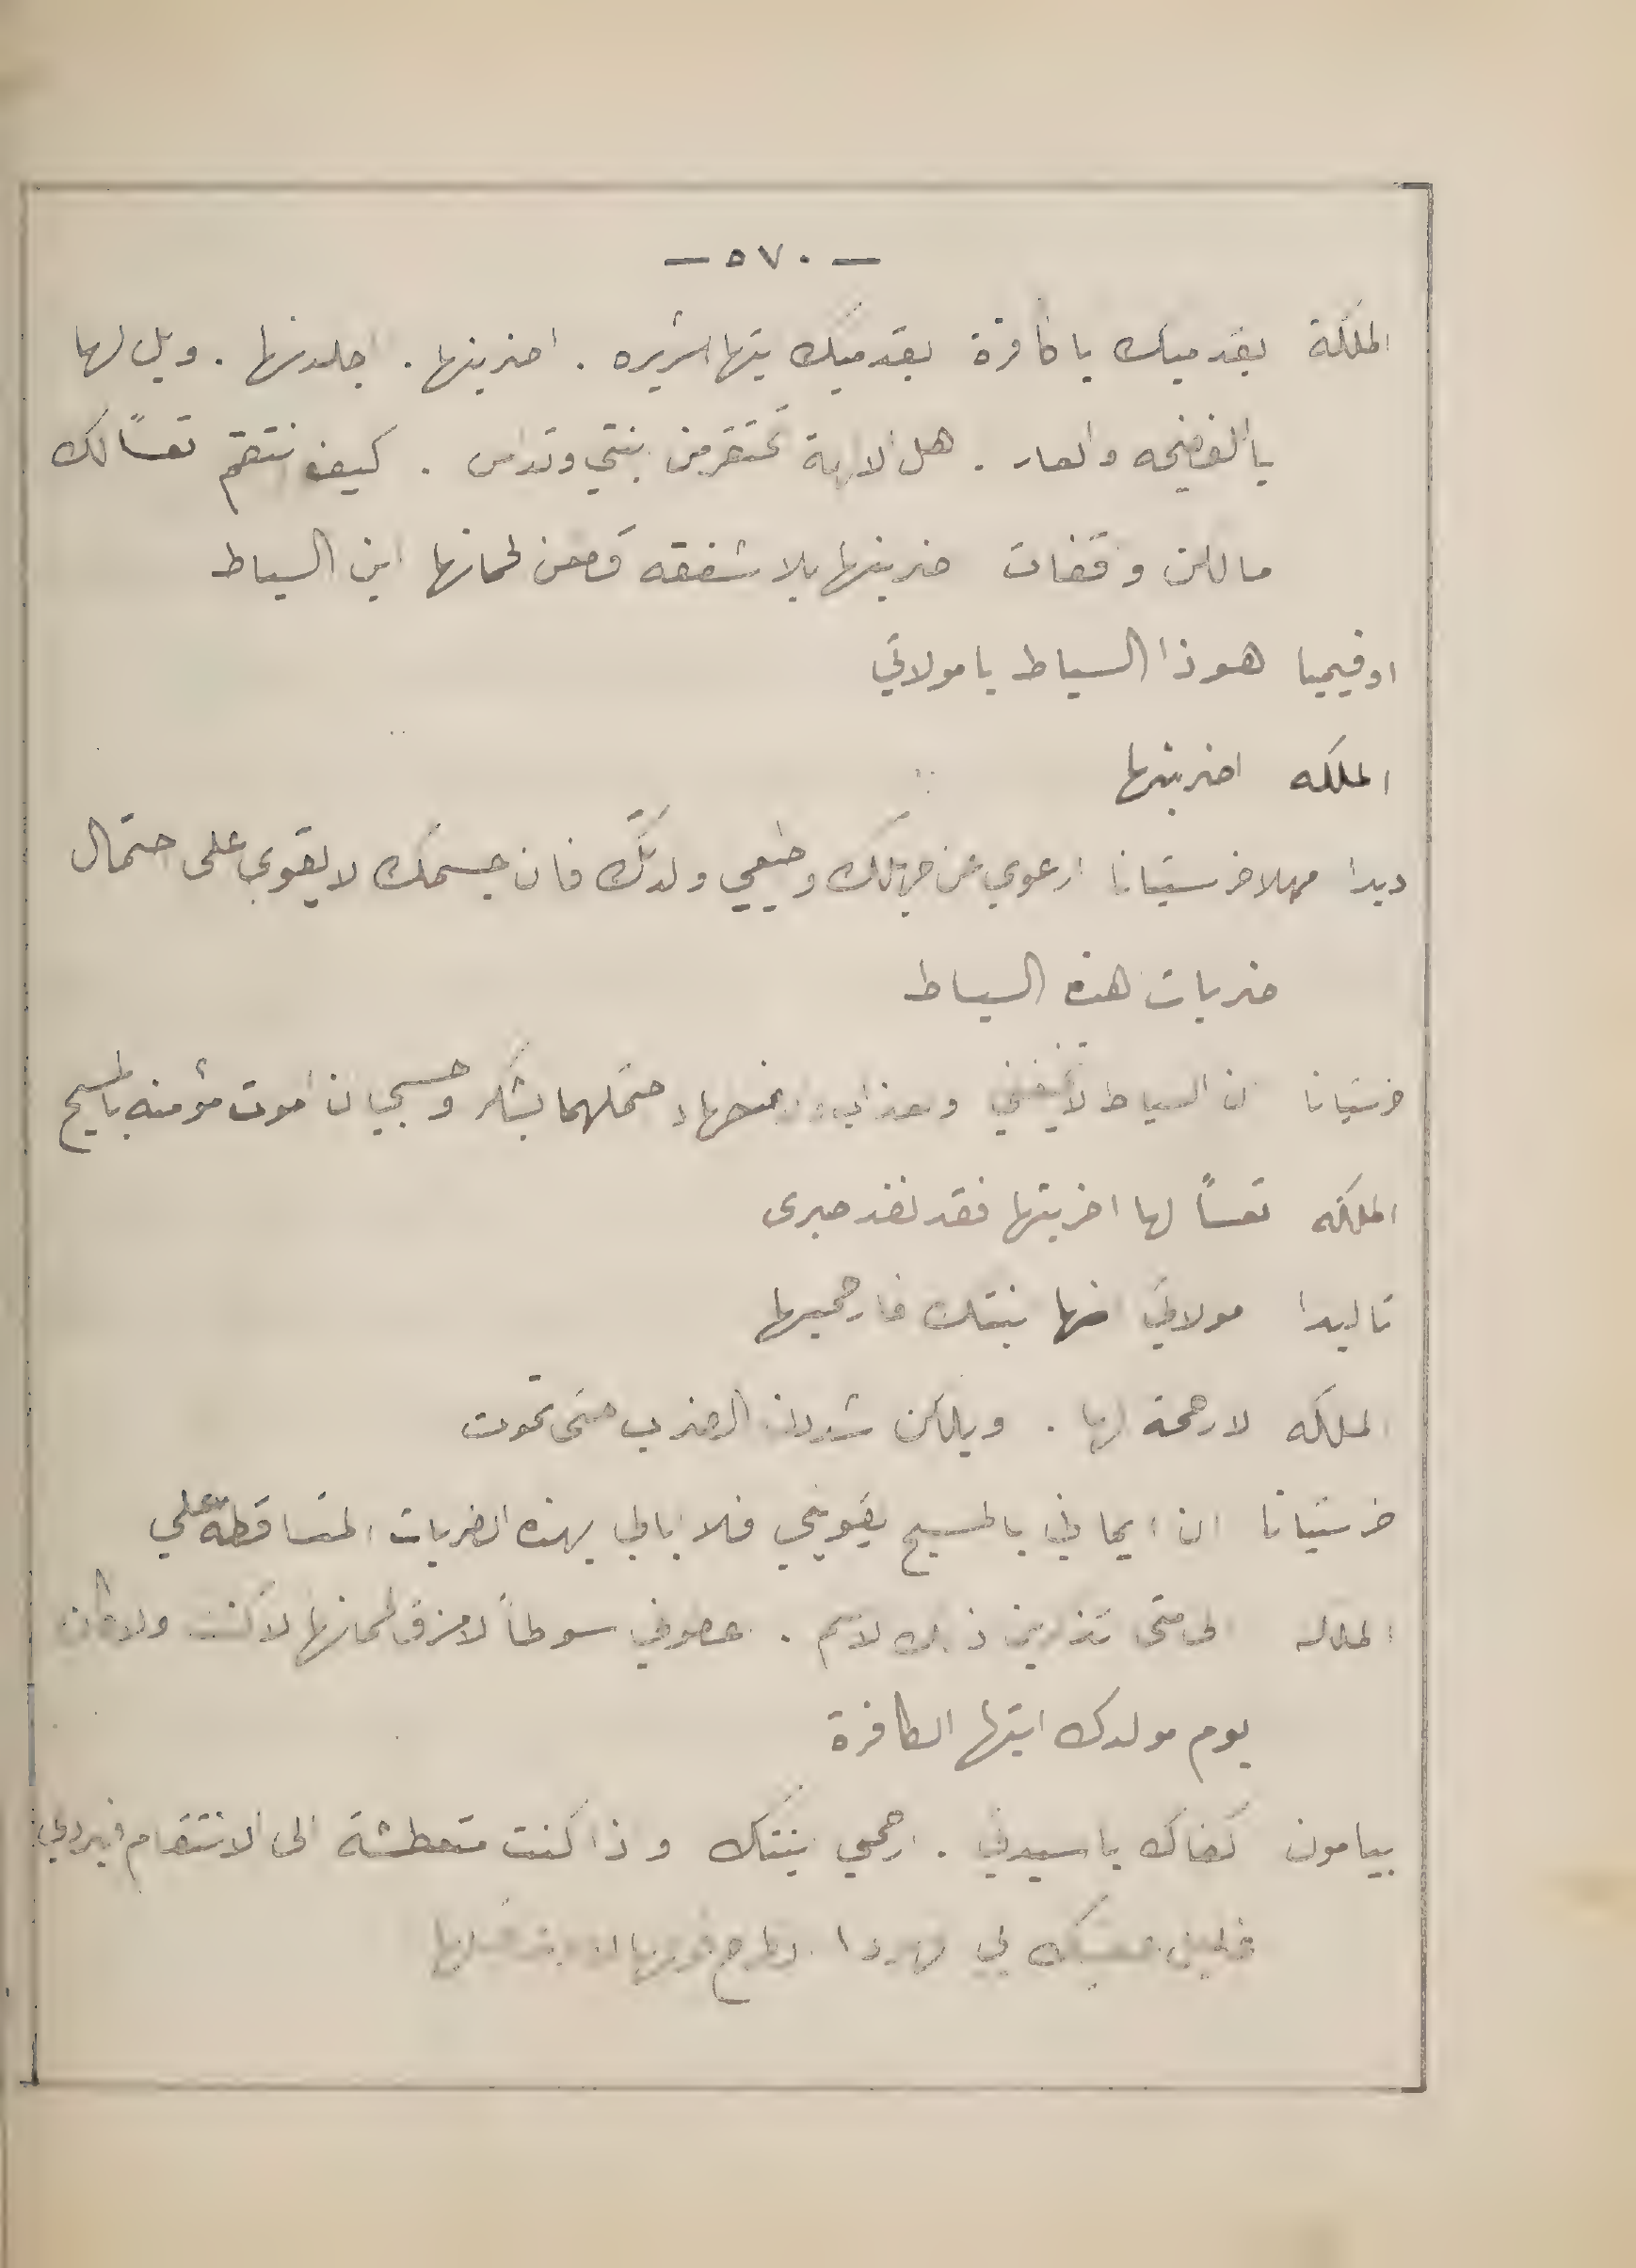 — ٥٧٠ —
الملكة بقدميك يا كافرة بقدميك يتها الشريره . اضربنها . اجلدنها . ويل لها
يا الفضيحه والعار . هل الالهة تحتقر من بنتي وتداس . كيف انتقم تعسًا لك
مالكن وقفات ضربنها بلا شفقه قطعن لحمانها اين السياط
اوفيميا هوذا السياط يا مولاتي
الملكه اضربنها
ديدا مهلا خرستيانا ارعوي عن جهلك وطيعي ولدتك فان جسمك لا يقوى على حتمال
ضربات هذه السياط
خرستيانا ان السياط لا تخيفني والعذاب حتملهما بشكر وحسبي ان اموت مؤمنه بالمسيح
الملكه تعسًا لها اضربنها فقد نفذ صبرى
تاليدا مولاتي انها بنتك فارحميها
الملكه لا رحمة لها . ويلكن شددن الضرب حتى تموت
خرستيانا ان ايماني بالمسيح يقويني فلا ابالي بهذه الضربات المتساقطة علي
الملكه الى متى تذكرين ذلك لاسم . عطوني سوطاً لامزق لحمانها لا كنت ولا كان
يوم مولدك ايتها الكافرة
بيامون كفاك يا سيدتي . ارحمي بنتك وذا كنت متعطشة الى الانتقام